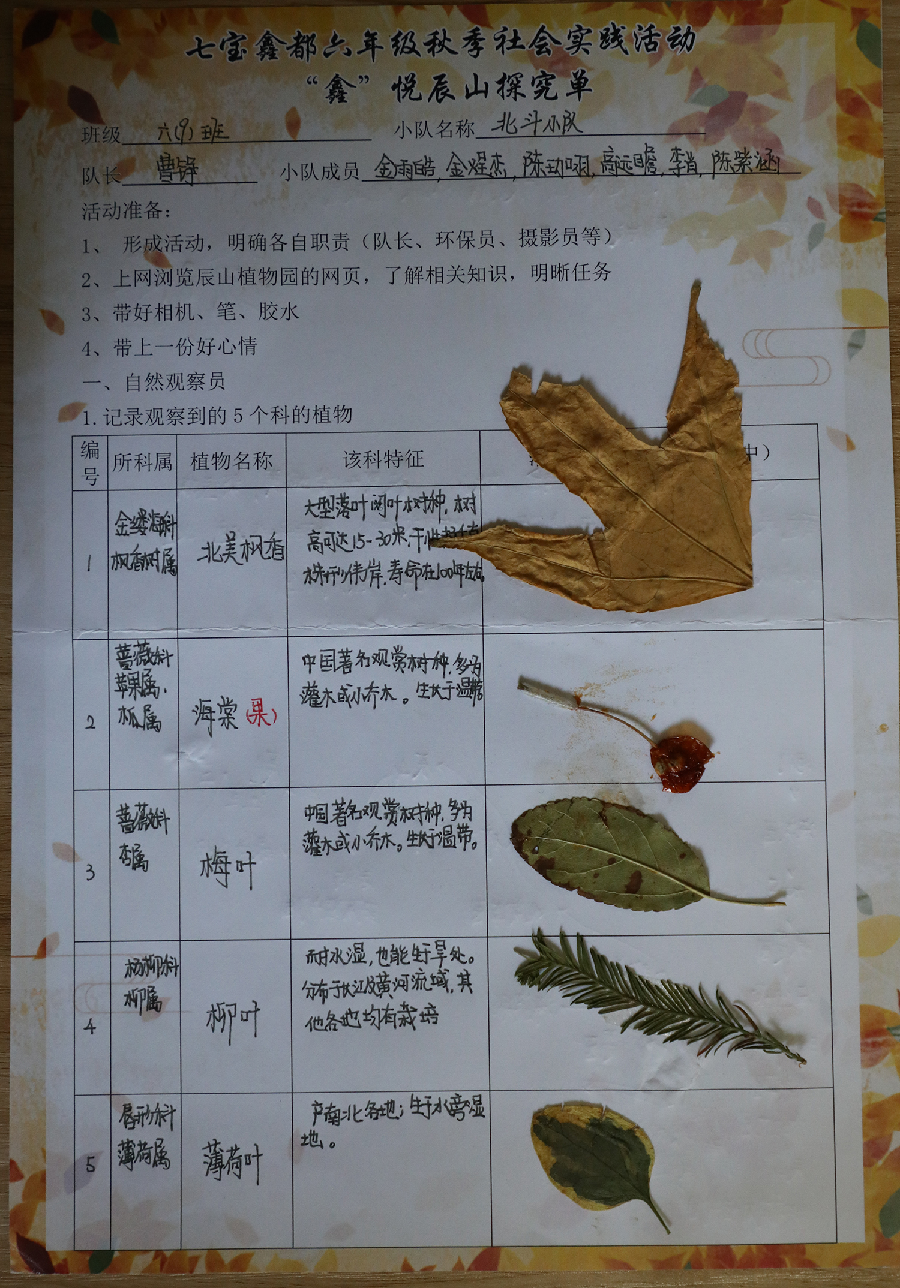 七宝鑫都六年级秋季社会实践活动
“鑫”悦辰山探究单
班级 六(9)班 小队名称 北斗小队
队长 曹锌 小队成员 金雨皓, 金煜杰, 陈劲翊, 高远瞻, 李肖, 陈紫涵
活动准备：
1、 形成活动，明确各自职责（队长、环保员、摄影员等）
2、上网浏览辰山植物园的网页，了解相关知识，明晰任务
3、带好相机、笔、胶水
4、带上一份好心情
一、自然观察员
1.记录观察到的5个科的植物
编号 所科属 植物名称 该科特征 中）
1 金缕梅科 枫香树属 北美枫香
大型落叶阔叶树种，树
高可达15-30米，
寿命在100年左右
2 蔷薇科 苹果属， 属 海棠(果)
中国著名观赏树种，多为
灌木或小乔木。生长于温带
3 蔷薇科 杏属 梅叶
中国著名观赏树种，多为
灌木或小乔木。生长于温带。
4 杨柳科 柳属 柳叶
耐水湿，也能生于旱处。
分布于长江及黄河流域，其
他各地均有栽培
5 唇形科 薄荷属 薄荷叶
产南北各地；生于水旁湿
地。